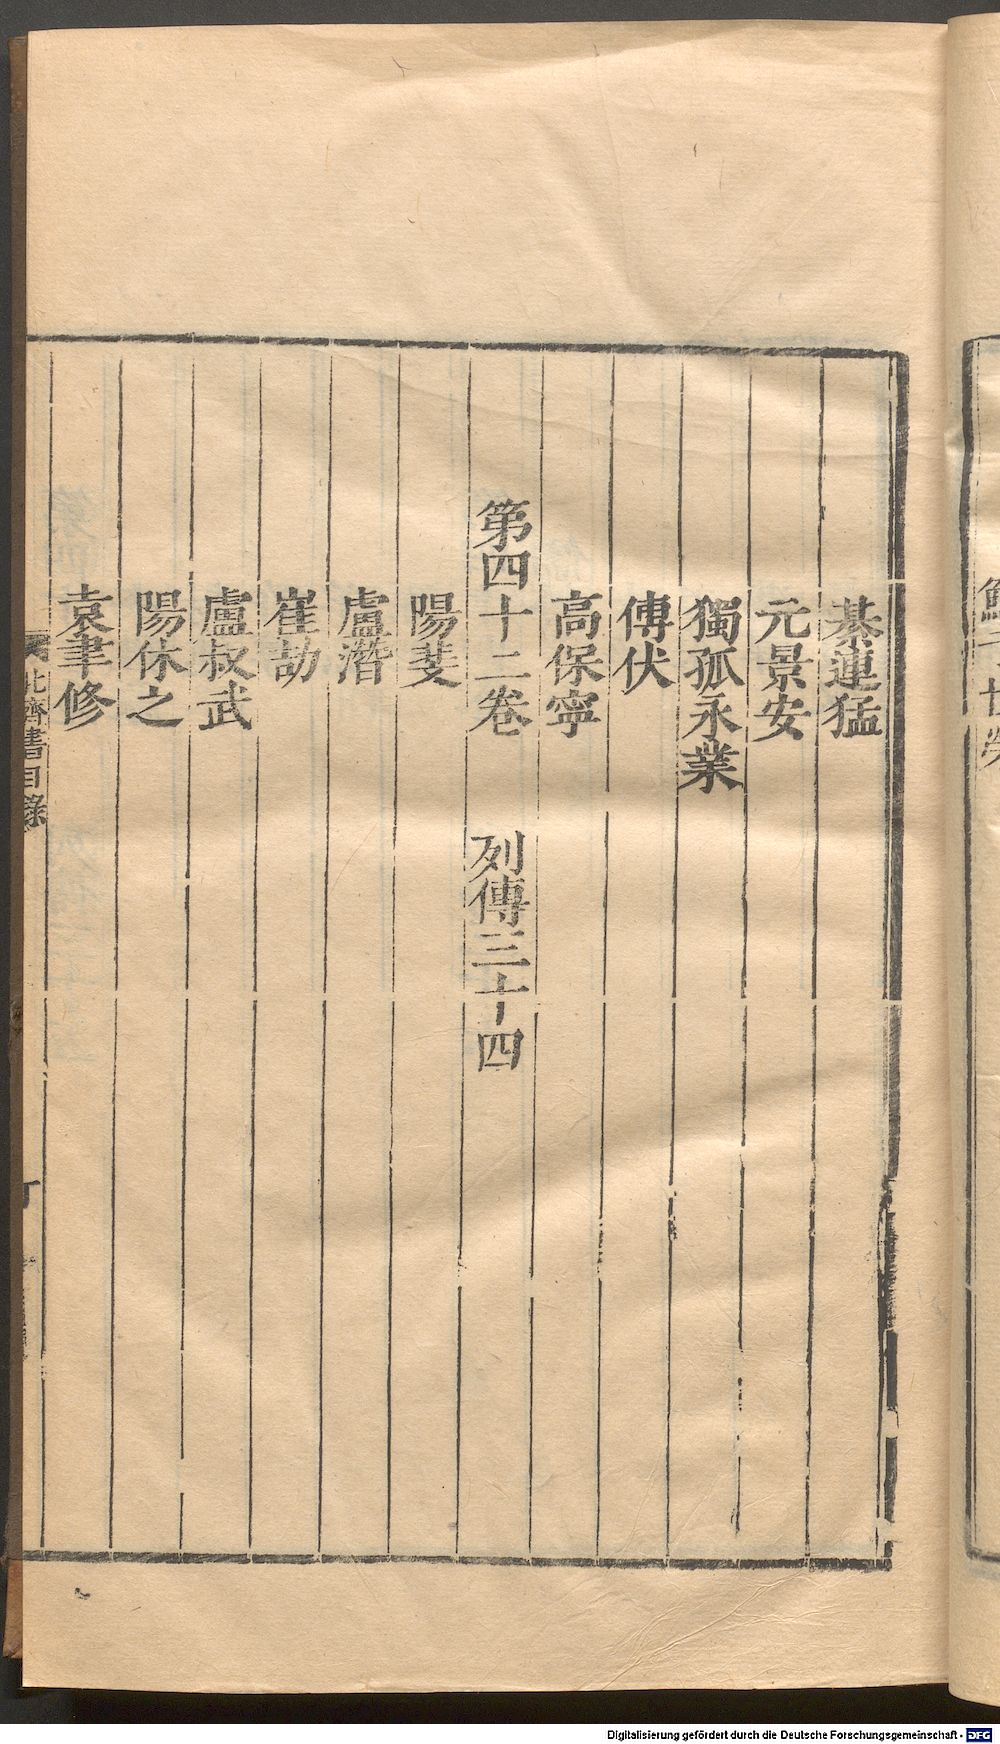 綦連猛
元景安
獨孤永業
傅伏
高保寧
第四十二卷 列傳三十四
陽斐
盧潛
崔劼
盧叔武
陽休之
袁聿修
北齊書目錄
Digitalisierung gefördert durch die Deutsche Forschungsgemeinschaft - DFG